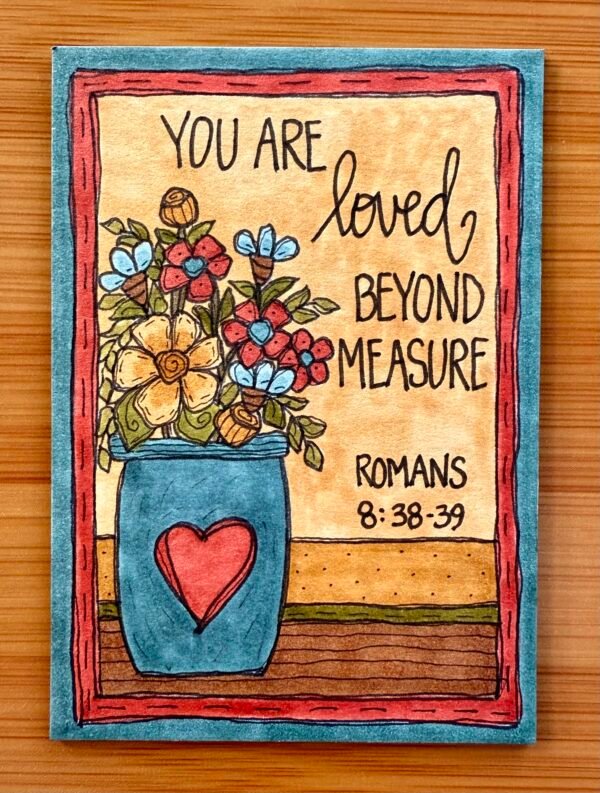 YOU ARE
loved
BEYOND
MEASURE
ROMANS
8:38-39